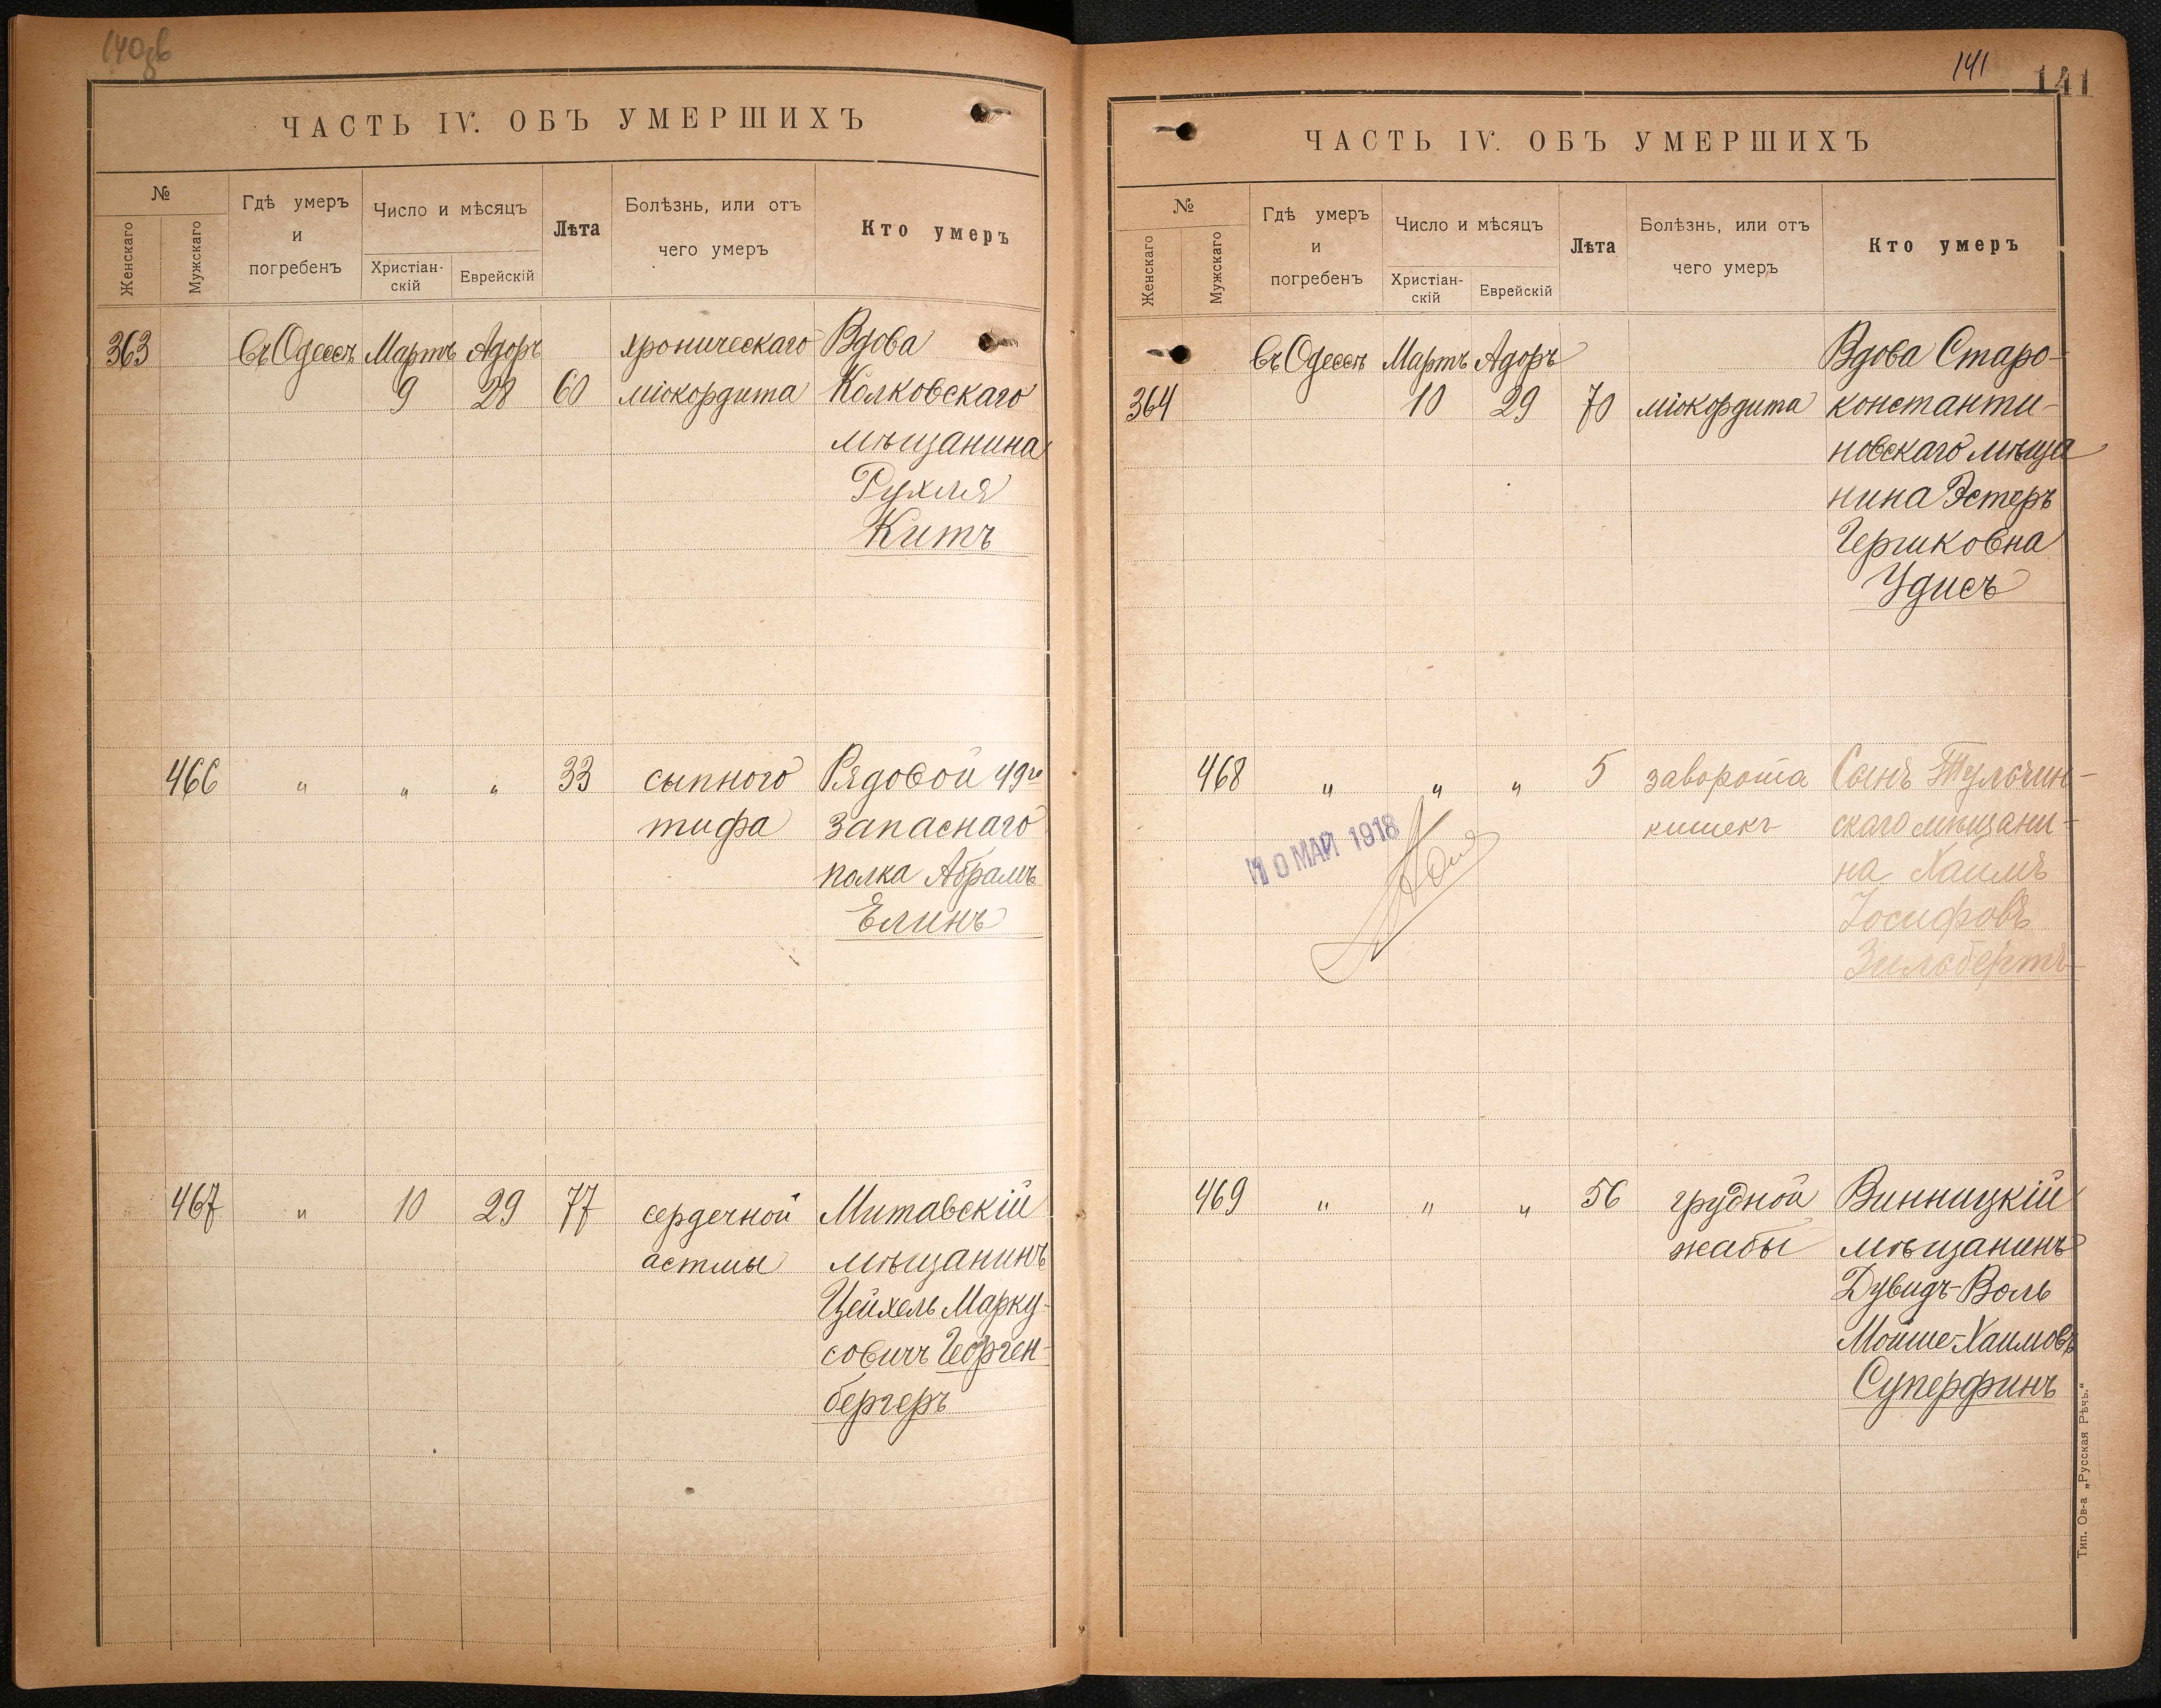 140 зв
ЧАСТЬ IV. ОБЪ УМЕРШИХЪ
№
Женскаго
Мужскаго
Гдѣ умеръ
и
погребенъ
Число и мѣсяцъ
Христіан-
скій
Еврейскій
Лѣта
Болѣзнь, или отъ
чего умеръ
Кто умеръ
363 въ Одессѣ Мартъ Адоръ хроническаго Вдова
9 28 60 міокордита Колковскаго
мѣщанина
Рухля
Китъ
466 " " " 33 сыпного Рядовой 49го
тифа запаснаго
полка Абрамъ
Елинъ
467 " 10 29 77 сердечной Митавскій
астмы мѣщанинъ
Цейхель Марку-
совичъ Георген-
бергеръ
141
141
ЧАСТЬ IV. ОБЪ УМЕРШИХЪ
№
Женскаго
Мужскаго
Гдѣ умеръ
и
погребенъ
Число и мѣсяцъ
Христіан-
скій
Еврейскій
Лѣта
Болѣзнь, или отъ
чего умеръ
Кто умеръ
въ Одессѣ Мартъ Адоръ Вдова Старо-
364 10 29 70 міокордита константи-
новскаго мѣща
нина Эстеръ
Гершковна
Удисъ
468 " " " 5 заворота Сынъ Тульчин-
кишекъ скаго мѣщани-
на Хаимъ
Іосифовъ
Зильбертъ
10 МАЙ 1918
469 " " " 56 грудной Винницкій
жабы мѣщанинъ
Дувидъ-Воль
Мойше-Хаимовъ
Суперфинъ
Тип. Ов-а „Русская Рѣчь.“